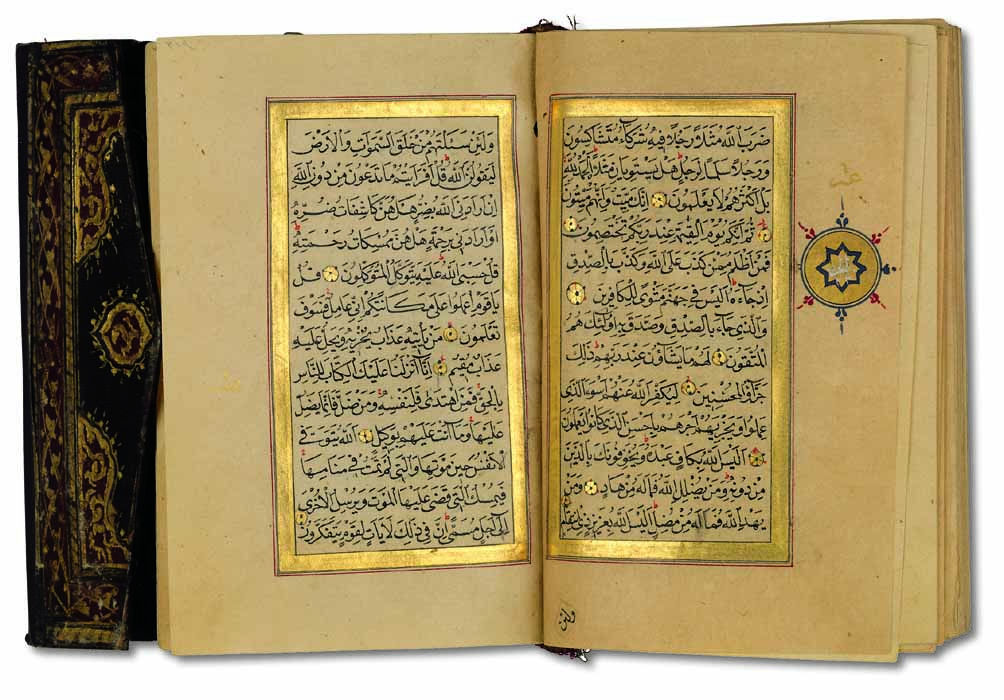 ضرب الله مثلا رجلا فيه شركاء متشاكسون
ورجلا سلما لرجل هل يستويان مثلا الحمد لله
بل اكثرهم لا يعلمون انك ميت وانهم ميتون
ثم انكم يوم القيمة عند ربكم تختصمون
فمن اظلم ممن كذب على الله وكذب بالصدق
اذ جاءه اليس في جهنم مثوى للكافرين
والذي جاء بالصدق وصدق به اولئك هم
المتقون لهم ما يشاؤن عند ربهم ذلك
جزاؤ المحسنين ليكفر الله عنهم اسوء الذي
عملوا ويجزيهم اجرهم باحسن الذي كانوا يعملون
اليس الله بكاف عبده ويخوفونك بالذين
من دونه ومن يضلل الله فما له من هاد ومن
يهد الله فما له من مضل اليس الله بعزيز ذي انتقام
ولئن
ولئن سئلتهم من خلق السموات والارض
ليقولن الله قل افرايتم ما تدعون من دون الله
ان ارادني الله بضر هل هن كاشفات ضره
او ارادني برحمة هل هن ممسكات رحمته
قل حسبي الله عليه يتوكل المتوكلون قل
يا قوم اعملوا على مكانتكم اني عامل فسوف
تعلمون من ياتيه عذاب يخزيه ويحل عليه
عذاب مقيم انا انزلنا عليك الكتاب للناس
بالحق فمن اهتدى فلنفسه ومن ضل فانما يضل
عليها وما انت عليهم بوكيل الله يتوفى
الانفس حين موتها والتي لم تمت في منامها
فيمسك التي قضى عليها الموت ويرسل الاخرى
الى اجل مسمى ان في ذلك لايات لقوم يتفكرون